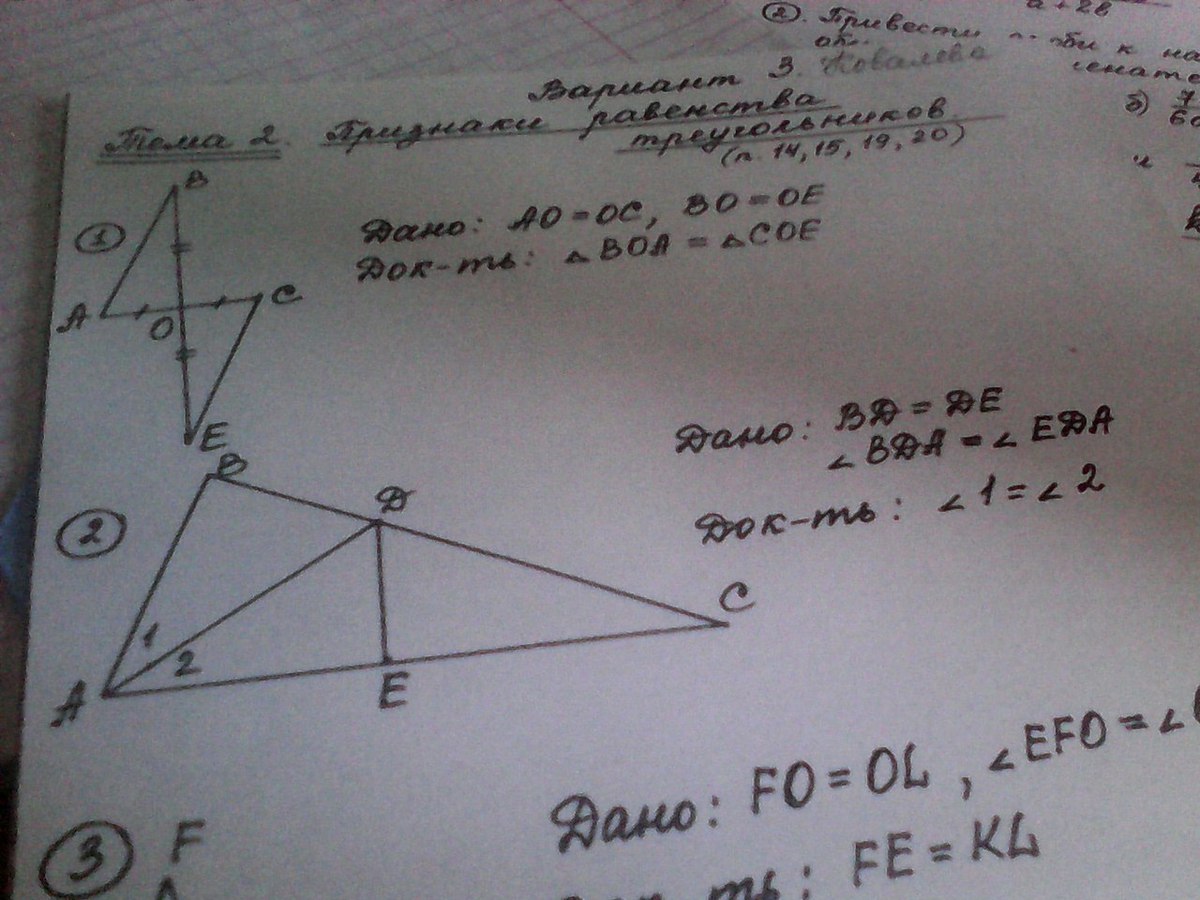 а + 2в
2. Привести
Вариант 3. Ковалева
Тема 2. Признаки равенства
треугольников.
(п. 14, 15, 19, 20)
б) 7
1
B
A
O
C
E
Дано: AO = OC, BO = OE
Док-ть: △BOA = △COE
2
B
D
C
A
1
2
E
Дано: BD = DE
∠BDA = ∠EDA
Док-ть: ∠1 = ∠2
3
F
Дано: FO = OL, ∠EFO = ∠
ть: FE = KL